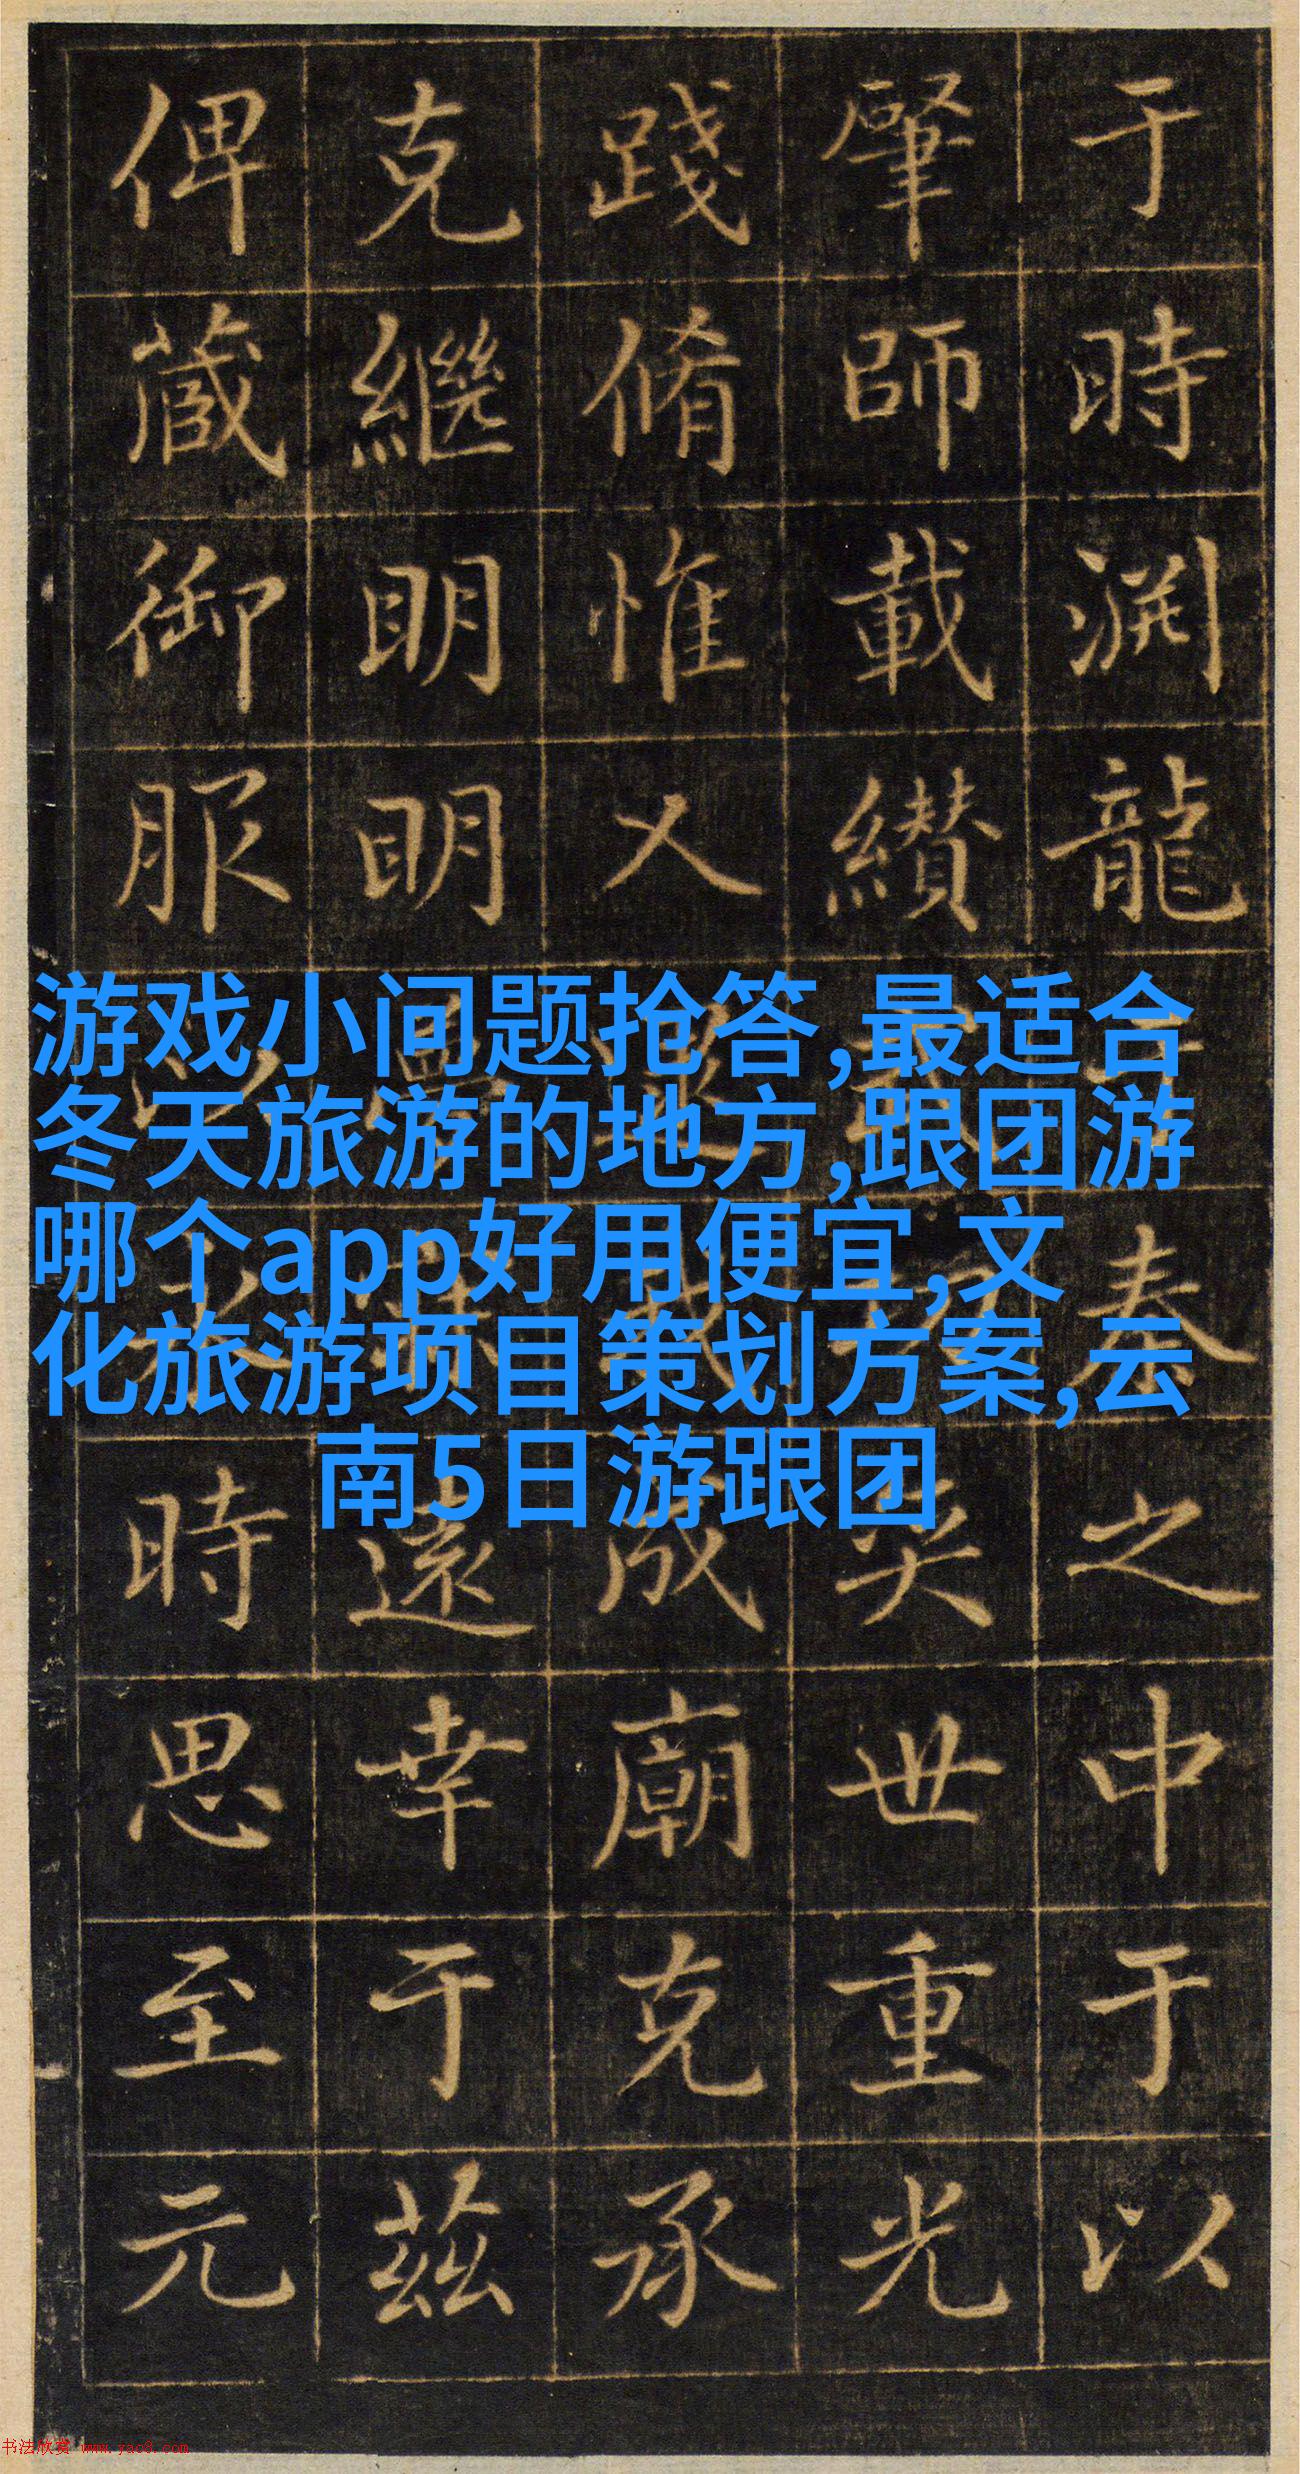 于時渊龍奏之中于以
肇師載纘奕世重光
踐脩惟乂成廟克承
克繼明明遠幸于茲
俾蔵御服時思至元
游戏小问题抢答,最适合
冬天旅游的地方,跟团游
哪个app好用便宜,文
化旅游项目策划方案,云
南5日游跟团
书法欣赏 www.yac8.com